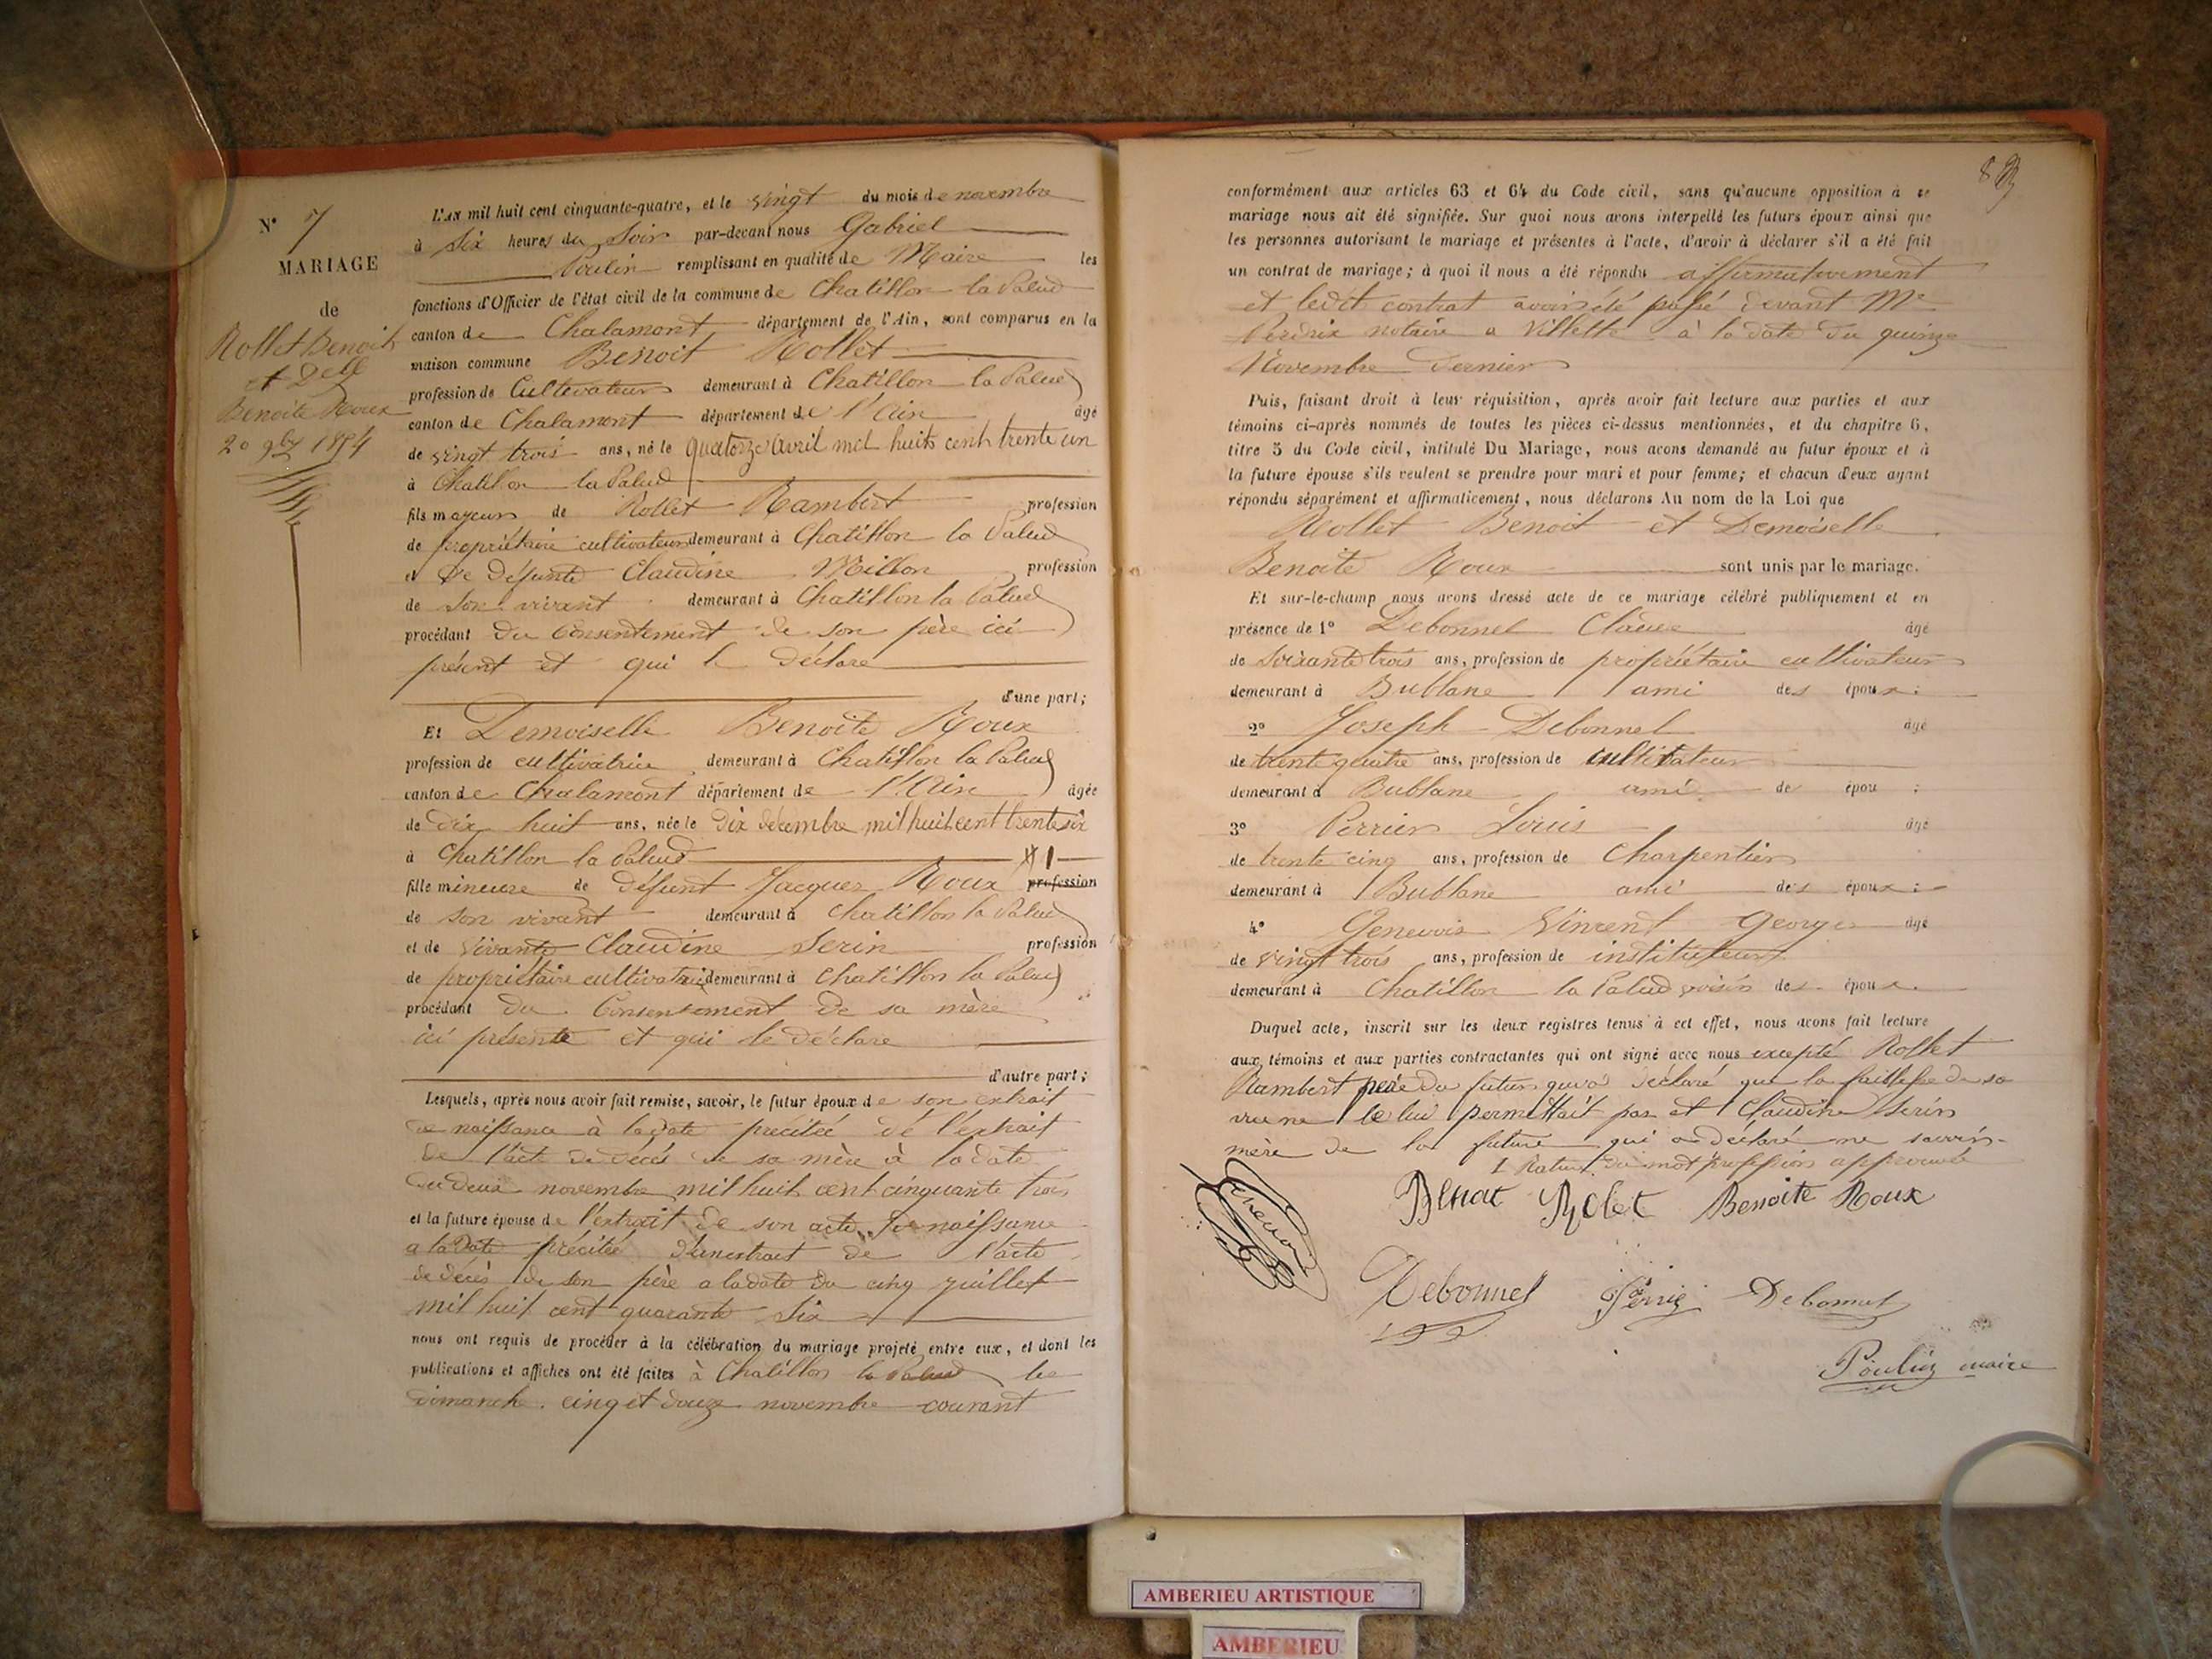 N° 7
MARIAGE
de
Rollet Benoit
et Delle
Benoite Roux
20 9bre 1854
L'AN mil huit cent cinquante-quatre, et le vingt du mois de novembre
à six heures du soir par-devant nous Gabriel
Poulin remplissant en qualité de Maire les
fonctions d'Officier de l'état civil de la commune de Chatillon la Palud
canton de Chalamont département de l'Ain, sont comparus en la
maison commune Benoit Rollet
profession de Cultivateur demeurant à Chatillon la Palud
canton de Chalamont département de l'Ain âgé
de vingt trois ans, né le quatorze avril mil huit cent trente un
à Chatillon la Palud
fils majeur de Rollet Rambert profession
de propriétaire cultivateur demeurant à Chatillon la Palud
et de défunte Claudine Millon profession
de son vivant demeurant à Chatillon la Palud
procédant du consentement de son père ici
présent et qui le déclare
d'une part;
Et Demoiselle Benoite Roux
profession de cultivatrice demeurant à Chatillon la Palud
canton de Chalamont département de l'Ain âgée
de dix huit ans, née le dix décembre mil huit cent trente six
à Chatillon la Palud
fille mineure de défunt Jacques Roux profession
de son vivant demeurant à Chatillon la Palud
et de vivante Claudine Serin profession
de propriétaire cultivatrice demeurant à Chatillon la Palud
procédant du Consentement de sa mère
ici présente et qui le déclare
d'autre part;
Lesquels, après nous avoir fait remise, savoir, le futur époux de son extrait
de naissance à la date précitée de l'extrait
de l'acte de décès de sa mère à la date
du deux novembre mil huit cent cinquante trois
et la future épouse de l'extrait de son acte de naissance
a la date précitée d'unextrait de l'acte
de décès de son père a la date du cinq juillet
mil huit cent quarante six
nous ont requis de procéder à la célébration du mariage projeté entre eux, et dont les
publications et affiches ont été faites à Chatillon la Palud les
dimanche cinq et douze novembre courant
conformément aux articles 63 et 64 du Code civil, sans qu'aucune opposition à ce
mariage nous ait été signifiée. Sur quoi nous avons interpellé les futurs époux ainsi que
les personnes autorisant le mariage et présentes à l'acte, d'avoir à déclarer s'il a été fait
un contrat de mariage; à quoi il nous a été répondu affirmativement
et ledit contrat avoir été passé devant Me
Perdrix notaire a Villette à la date du quinze
Novembre dernier
Puis, faisant droit à leur réquisition, après avoir fait lecture aux parties et aux
témoins ci-après nommés de toutes les pièces ci-dessus mentionnées, et du chapitre 6,
titre 5 du Code civil, intitulé Du Mariage, nous avons demandé au futur époux et à
la future épouse s'ils veulent se prendre pour mari et pour femme; et chacun d'eux ayant
répondu séparément et affirmativement, nous déclarons Au nom de la Loi que
Rollet Benoit et Demoiselle
Benoite Roux sont unis par le mariage.
Et sur-le-champ nous avons dressé acte de ce mariage célébré publiquement et en
présence de 1° Debonnel Claude âgé
de soixante trois ans, profession de propriétaire cultivateur
demeurant à Bublane ami des époux;
2° Joseph Debonnel âgé
de trente quatre ans, profession de cultivateur
demeurant à Bublane ami de épou ;
3° Perrier Louis âgé
de trente cinq ans, profession de Charpentier
demeurant à Bublane ami des époux;
4° Genevois Vincent George âgé
de vingt trois ans, profession de instituteur
demeurant à Chatillon la Palud voisin des époux.
Duquel acte, inscrit sur les deux registres tenus à cet effet, nous avons fait lecture
aux témoins et aux parties contractantes qui ont signé avec nous excepté Rollet
Rambert père du futur qui a déclaré que la faiblesse de sa
vue ne le lui permettait pas et Claudine Serin
mère de la future qui a déclaré ne savoir.
1 Rature du mot profession approuvée
Benoit Rolet Benoite Roux
Debonnel Perrie Debonnel
Poulin maire
AMBERIEU ARTISTIQUE
AMBERIEU